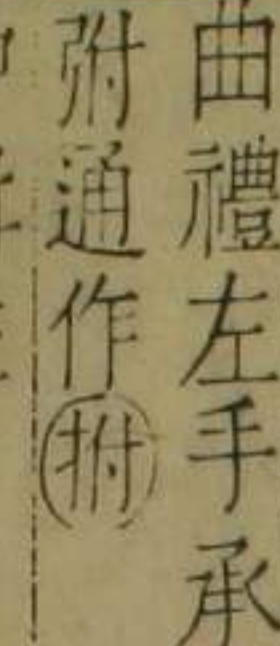 曲禮左手承
弣通作拊